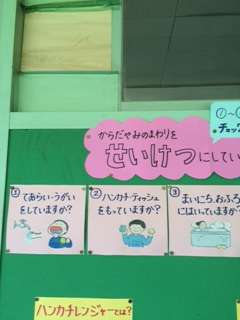 ①〜
チェッ
からだやみのまわりを
せいけつにしてい
① てあらい・うがい
をしていますか？
② ハンカチ・ティッシュ
をもっていますか？
③ まいにち、おふろ
にはいっていますか
ハンカチレンジャーとは？